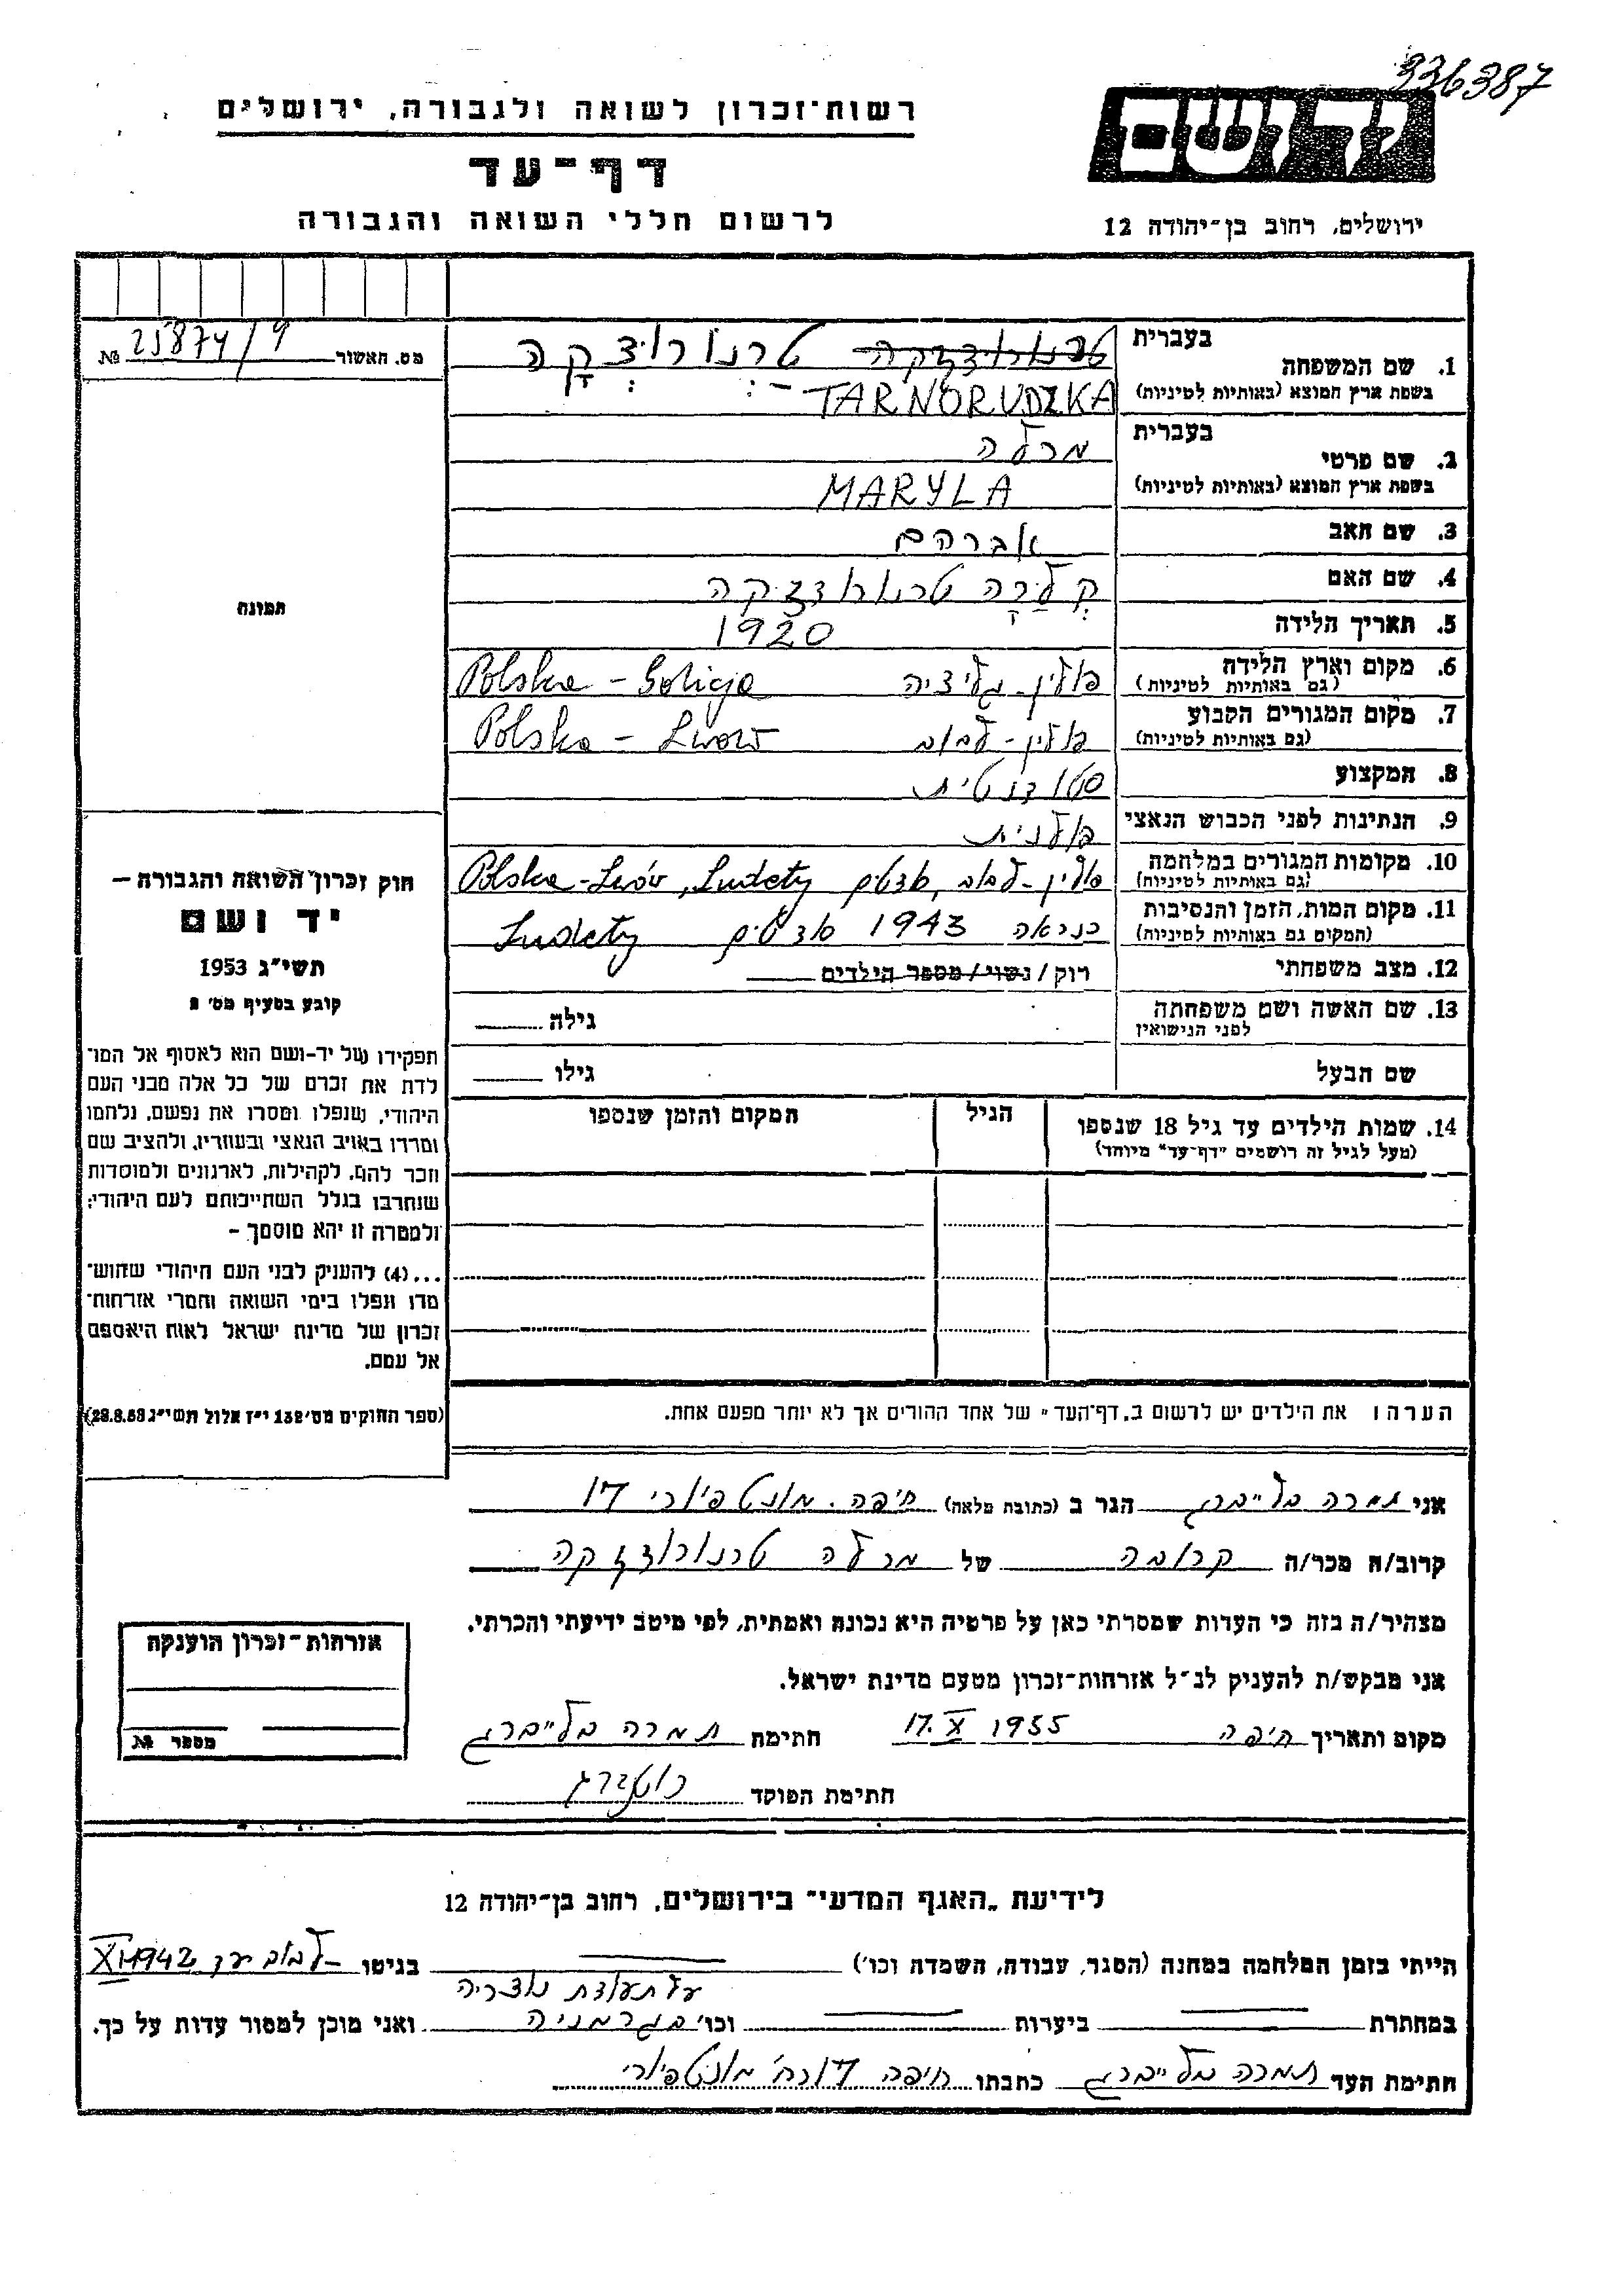 336387
רשות־זכרון לשואה ולגבורה, ירושלים
יד ושם
דף־עד
לרשום חללי השואה והגבורה
ירושלים, רחוב בן־יהודה 12
מס. האשור № 25874/9
1. שם המשפחה
בעברית טרנורודזקה טרנורוּצְקָה
בשפת ארץ המוצא (באותיות לטיניות) TARNORUDZKA
2. שם פרטי
בעברית מרלה
בשפת ארץ המוצא (באותיות לטיניות) MARYLA
3. שם האב אברהם
4. שם האם קלרה טרנורודזקה
5. תאריך הלידה 1920
6. מקום וארץ הלידה (גם באותיות לטיניות) פולין - גליציה Polska - Galicja
7. מקום המגורים הקבוע (גם באותיות לטיניות) פולין - לבוב Polska - Lwów
8. המקצוע סטודנטית
9. הנתינות לפני הכבוש הנאצי פולנית
10. מקומות המגורים במלחמה (גם באותיות לטיניות) פולין - לבוב, סודטים Polska - Lwów, Sudety
11. מקום המות, הזמן והנסיבות (המקום גם באותיות לטיניות) כנראה 1943 סודטים Sudety
12. מצב משפחתי רוק / נשוי / מספר הילדים
13. שם האשה ושם משפחתה לפני הנישואין גילה
שם הבעל גילו
14. שמות הילדים עד גיל 18 שנספו (מעל לגיל זה רושמים "דף־עד" מיוחד)
הגיל
המקום והזמן שנספו
תמונה
חוק זכרון השואה והגבורה –
יד ושם
תשי"ג 1953
קובע בסעיף מס' 2
תפקידו של יד-ושם הוא לאסוף אל המו־
לדת את זכרם של כל אלה מבני העם
היהודי, שנפלו ומסרו את נפשם, נלחמו
ומרדו באויב הנאצי ובעוזריו, ולהציב שם
וזכר להם, לקהילות, לארגונים ולמוסדות
שנחרבו בגלל השתייכותם לעם היהודי;
ולמטרה זו יהא מוסמך –
...(4) להעניק לבני העם היהודי שהוש־
מדו ונפלו בימי השואה והמרי אזרחות־
זכרון של מדינת ישראל לאות היאספם
אל עמם.
(ספר החוקים מס' 132 י"ז אלול תשי"ג 28.8.53)
הערה: את הילדים יש לרשום ב"דף־העד" של אחד ההורים אך לא יותר מפעם אחת.
אני תמרה בלייברג הגר ב (כתובת מלאה) חיפה. מונטפיורי 17
קרוב/ה מכר/ה קרובה של מרלה טרנורודזקה
מצהיר/ה בזה כי העדות שמסרתי כאן על פרטיה היא נכונה ואמתית, לפי מיטב ידיעתי והכרתי.
אני מבקש/ת להעניק לנ"ל אזרחות־זכרון מטעם מדינת ישראל.
מקום ותאריך חיפה 17.X 1955 חתימת תמרה בלייברג
חתימת הפוקד
אזרחות־זכרון הוענקה
מספר №
לידיעת "האגף המדעי" בירושלים, רחוב בן־יהודה 12
הייתי בזמן המלחמה במחנה (הסגר, עבודה, השמדה וכו') בגיטו לבוב עד XI 1942
על תעודות נוצריה
במחתרת ביערות וכו' בגרמניה ואני מוכן למסור עדות על כך.
חתימת העד תמרה בלייברג כתבתו חיפה 17 רח' מונטפיורי